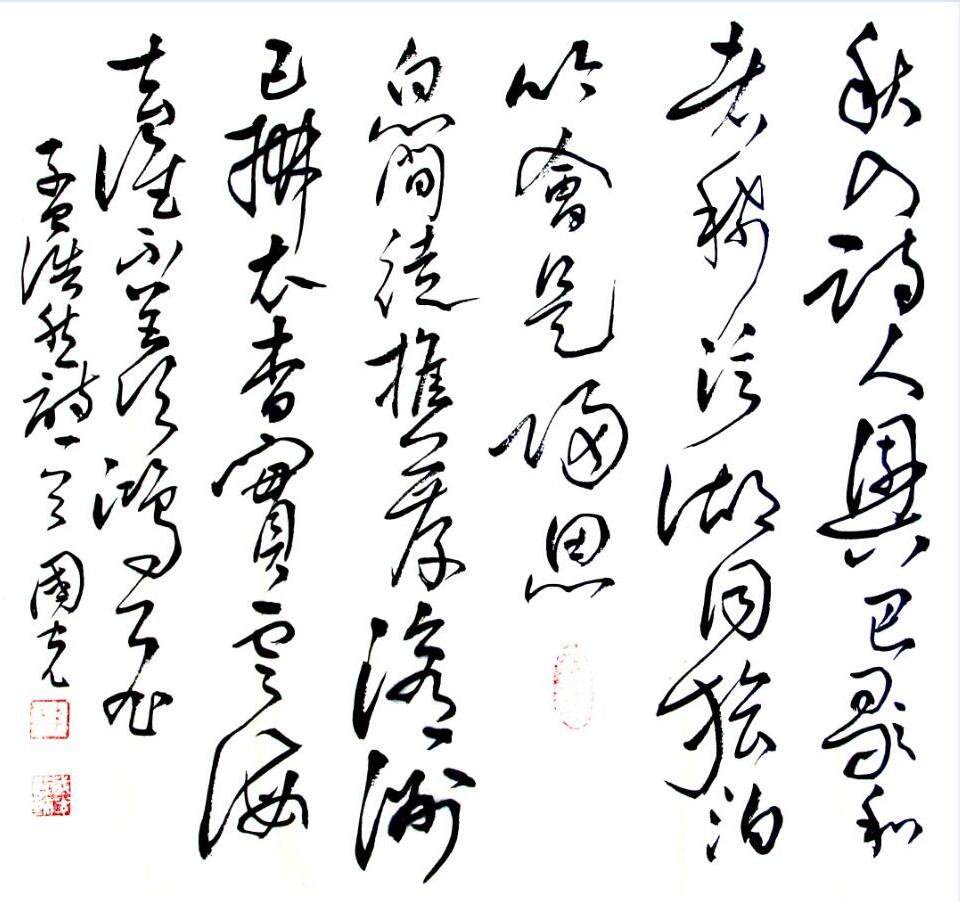 秋入詩人興巴歌和
者稀泛湖同旅泊
吟會是歸思
白簡徒推薦滄洲
已拂衣杳冥雲海
去誰不羨鴻飛
孟浩然詩一首 國克